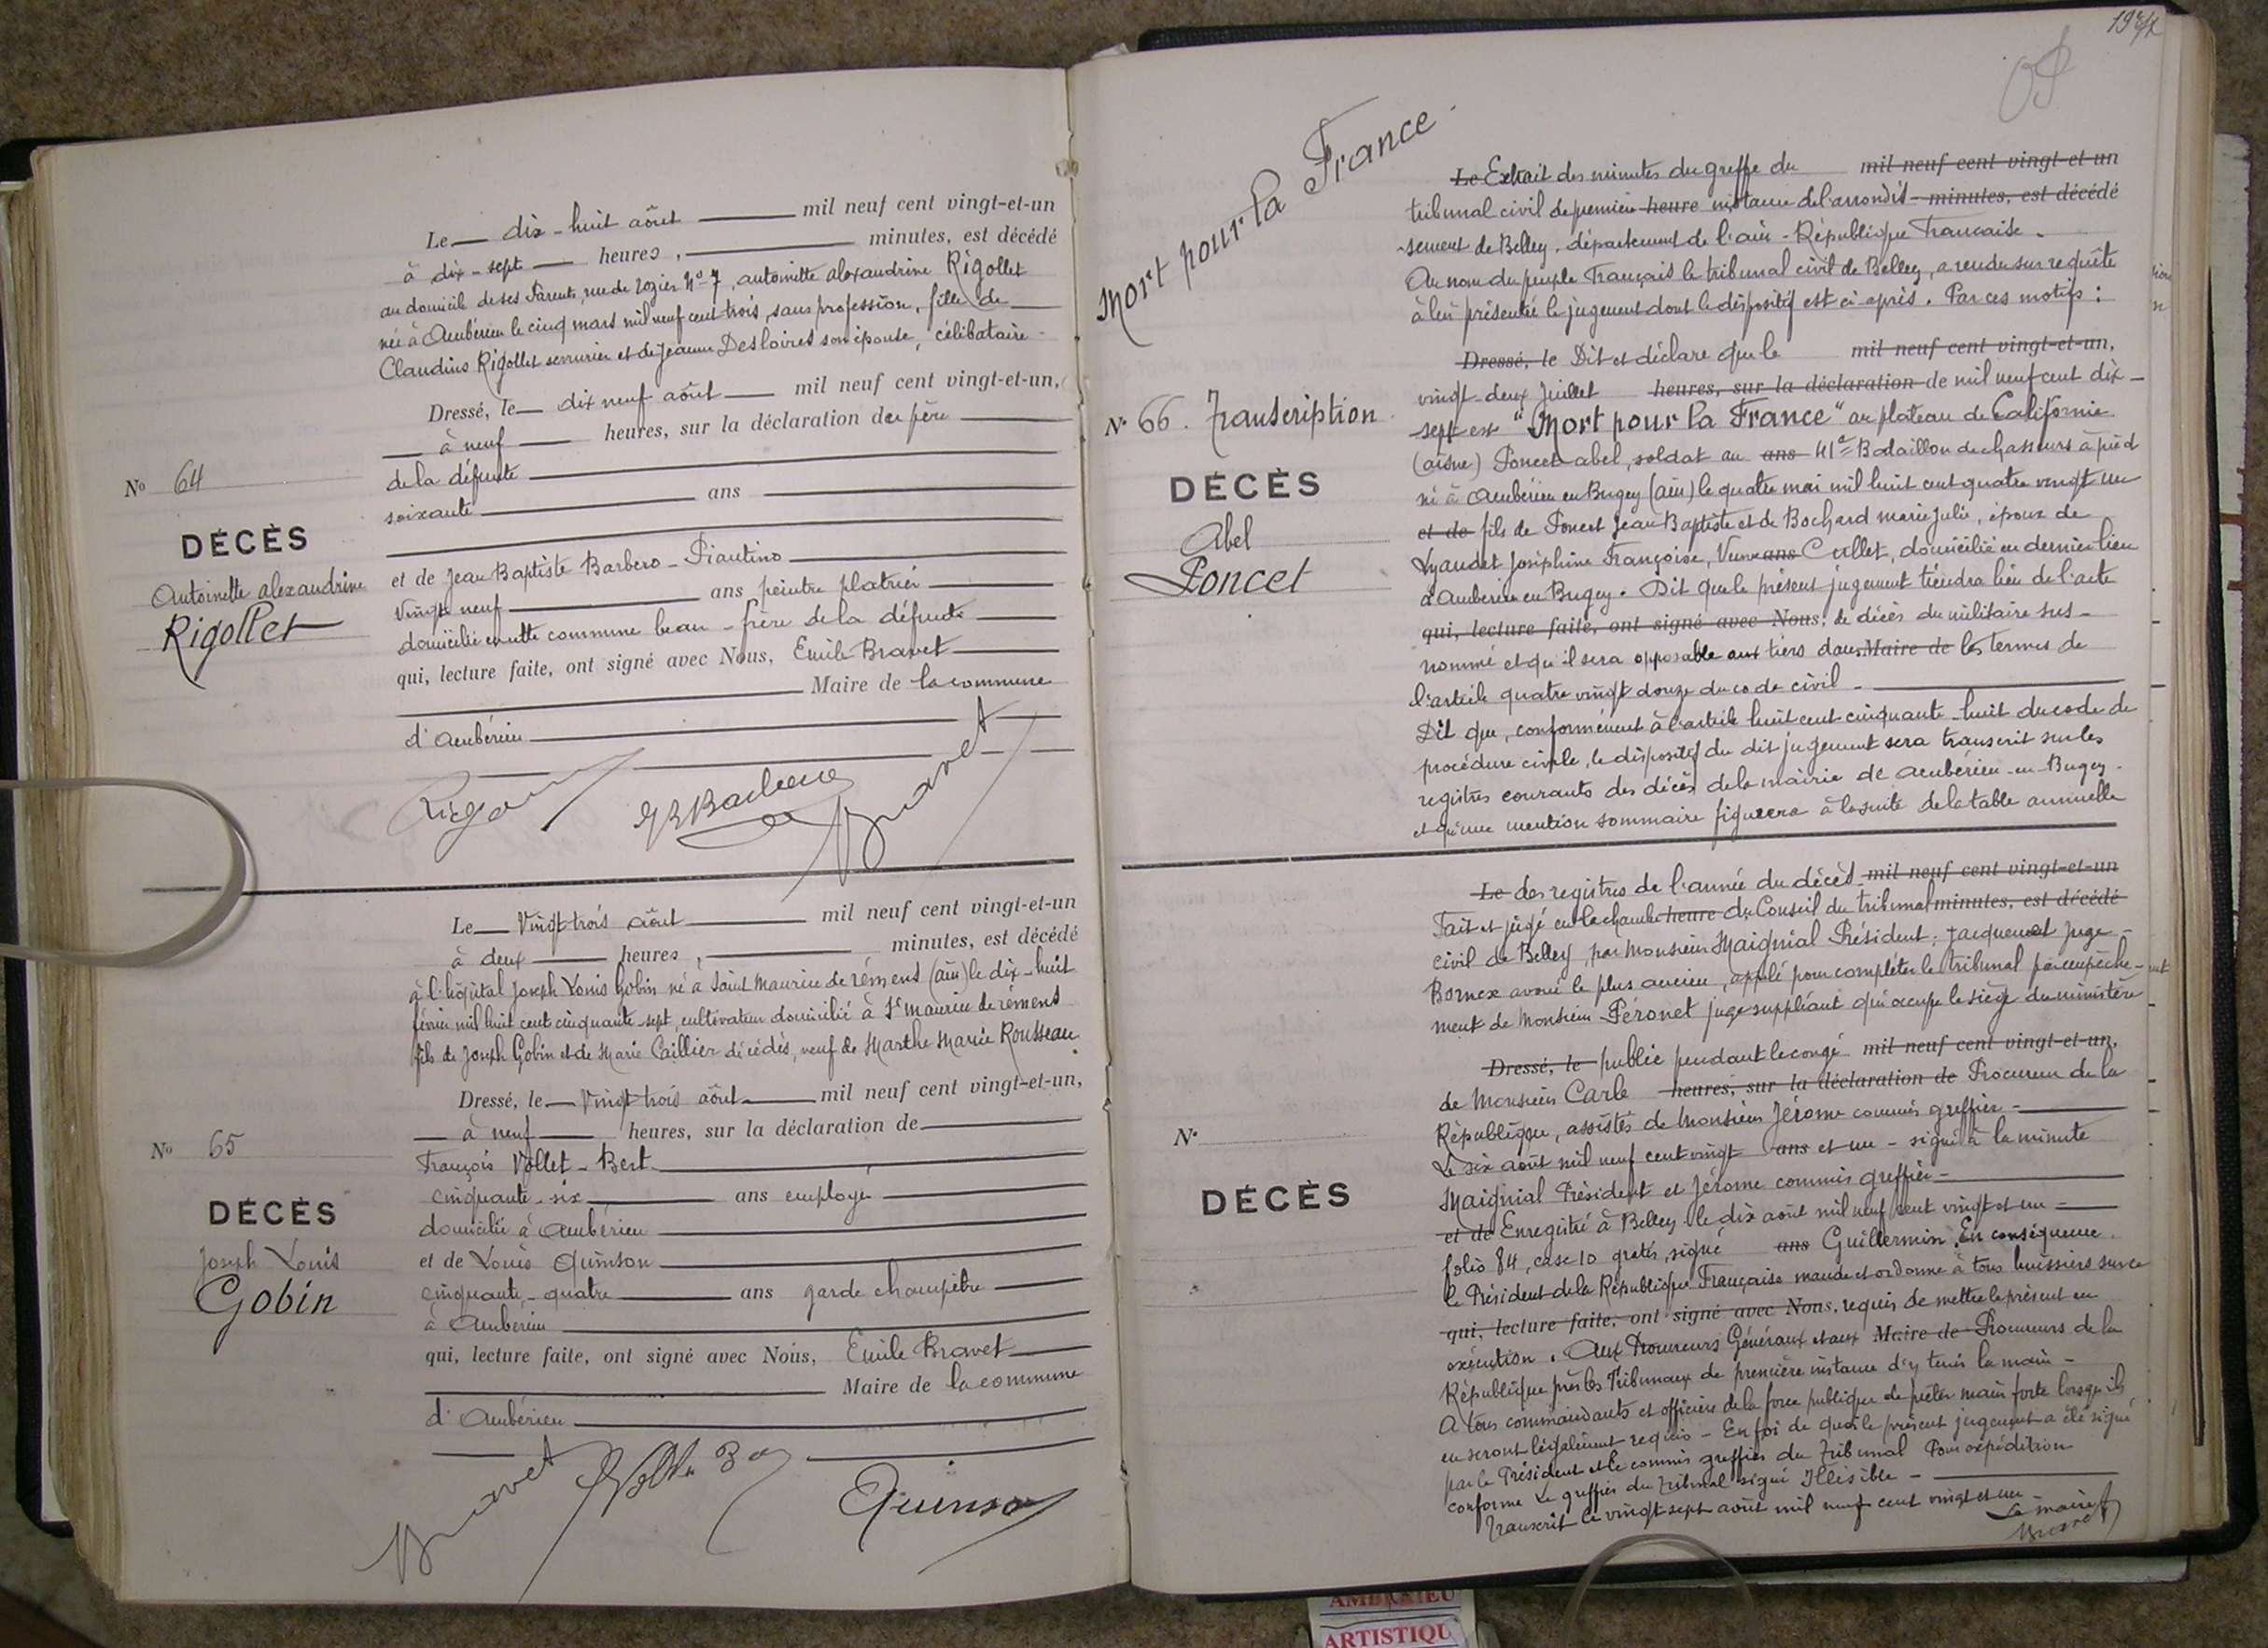 Le dix-huit août mil neuf cent vingt-et-un
à dix-sept heures, minutes, est décédé
au domicile de ses Parents, rue de No 7, antoinette alexandrine Rigollet
née à Ambérieu le cinq mars mil neuf cent trois, sans profession, fille de
Claudius Rigollet serrurier et de Jeanne Desloires son épouse, célibataire
Dressé, le dix neuf août mil neuf cent vingt-et-un,
à neuf heures, sur la déclaration du père
de la défunte
soixante ans
et de Jean Baptiste Barbero-Piantino
Vingt neuf ans peintre platrier
domicilié en cette commune beau-frère de la défunte
qui, lecture faite, ont signé avec Nous, Emile Bravet
Maire de la commune
d'Ambérieu
Bravet
No 64
DÉCÈS
Antoinette alexandrine
Rigollet
Le Vingt trois août mil neuf cent vingt-et-un
à deux heures, minutes, est décédé
à l'hôpital Joseph Louis Gobin né à Saint Maurice de rémens (ain) le dix-huit
février mil huit cent cinquante-sept, cultivateur domicilié à St maurice de rémens
fils de Joseph Gobin et de Marie Caillier décédés, veuf de Marthe Marie Rousseau
Dressé, le Vingt trois août mil neuf cent vingt-et-un,
à neuf heures, sur la déclaration de
François Vollet-Bert
cinquante-six ans employé
domicilié à Ambérieu
et de Louis Quinson
cinquante-quatre ans garde champêtre
à Ambérieu
qui, lecture faite, ont signé avec Nous, Emile Bravet
Maire de la commune
d'Ambérieu
Bravet Quinson
No 65
DÉCÈS
Joseph Louis
Gobin
Mort pour la France
Le Extrait des minutes du greffe du mil neuf cent vingt-et-un
tribunal civil de première heure instance de l'arrondis- minutes, est décédé
-sement de Belley. département de l'ain - République Française.
Au nom du peuple Français le tribunal civil de Belley, a rendu sur requête
à lui présentée le jugement dont le dispositif est ci-après. Par ces motifs :
Dressé, le Dit et déclare que le mil neuf cent vingt-et-un,
vingt-deux Juillet heures, sur la déclaration de mil neuf cent dix-
sept est "Mort pour la France" au plateau de Californie
(aisne) Poncet abel, soldat au ans 41e Bataillon de chasseurs à pied
né à Ambérieu en Bugey (ain) le quatre mai mil huit cent quatre vingt un
et de fils de Poncet Jean Baptiste et de Bochard marie Julie, époux de
Lyaudet Joséphine Françoise, Veuve ans Cullet, domicilié en dernier lieu
à Ambérieu en Bugey. Dit que le présent jugement tiendra lieu de l'acte
qui, lecture faite, ont signé avec Nous, de décès du militaire sus-
nommé et qu'il sera opposable aux tiers dans Maire de les termes de
l'article quatre vingt douze du code civil
Dit que, conformément à l'article huit cent cinquante-huit du code de
procédure civile, le dispositif du dit jugement sera transcrit sur les
registres courants des décès de la mairie de Ambérieu-en-Bugey
et qu'une mention sommaire figurera à la suite de la table annuelle
No 66. Transcription
DÉCÈS
Abel
Poncet
Le des registres de l'année du décès mil neuf cent vingt-et-un
Fait et jugé en la chambre heure du Conseil du tribunal minutes, est décédé
civil de Belley, par Monsieur Maignial Président, Jacquemet Juge
Bornex avoué le plus ancien, appelé pour compléter le tribunal par empêche-
ment de Monsieur Péronet juge suppléant qui occupe le siège du ministère
Dressé, le public pendant le congé mil neuf cent vingt-et-un,
de Monsieur Carle heures, sur la déclaration de Procureur de la
République, assistés de Monsieur Jérome commis greffier
Le six août mil neuf cent vingt ans et un - signé à la minute
Maignial Président et Jérome commis greffier
et de Enregistré à Belley le dix août mil neuf cent vingt et un
folio 84, case 10 gratis, signé ans Guillermin. En conséquence
le Président de la République Française mande et ordonne à tous huissiers sur ce
qui, lecture faite, ont signé avec Nous, requis de mettre le présent en
exécution. Aux Procureurs Généraux et aux Maire de Procureurs de la
République près les Tribunaux de première instance d'y tenir la main
A tous commandants et officiers de la force publique de prêter main forte lorsqu'ils
en seront légalement requis - En foi de quoi le présent jugement a été signé
par le Président et le commis greffier du Tribunal Pour expédition
conforme Le greffier du Tribunal signé Illisible
Transcrit le vingt sept août mil neuf cent vingt et un
Le maire
Bravet
No
DÉCÈS
ARTISTIQU